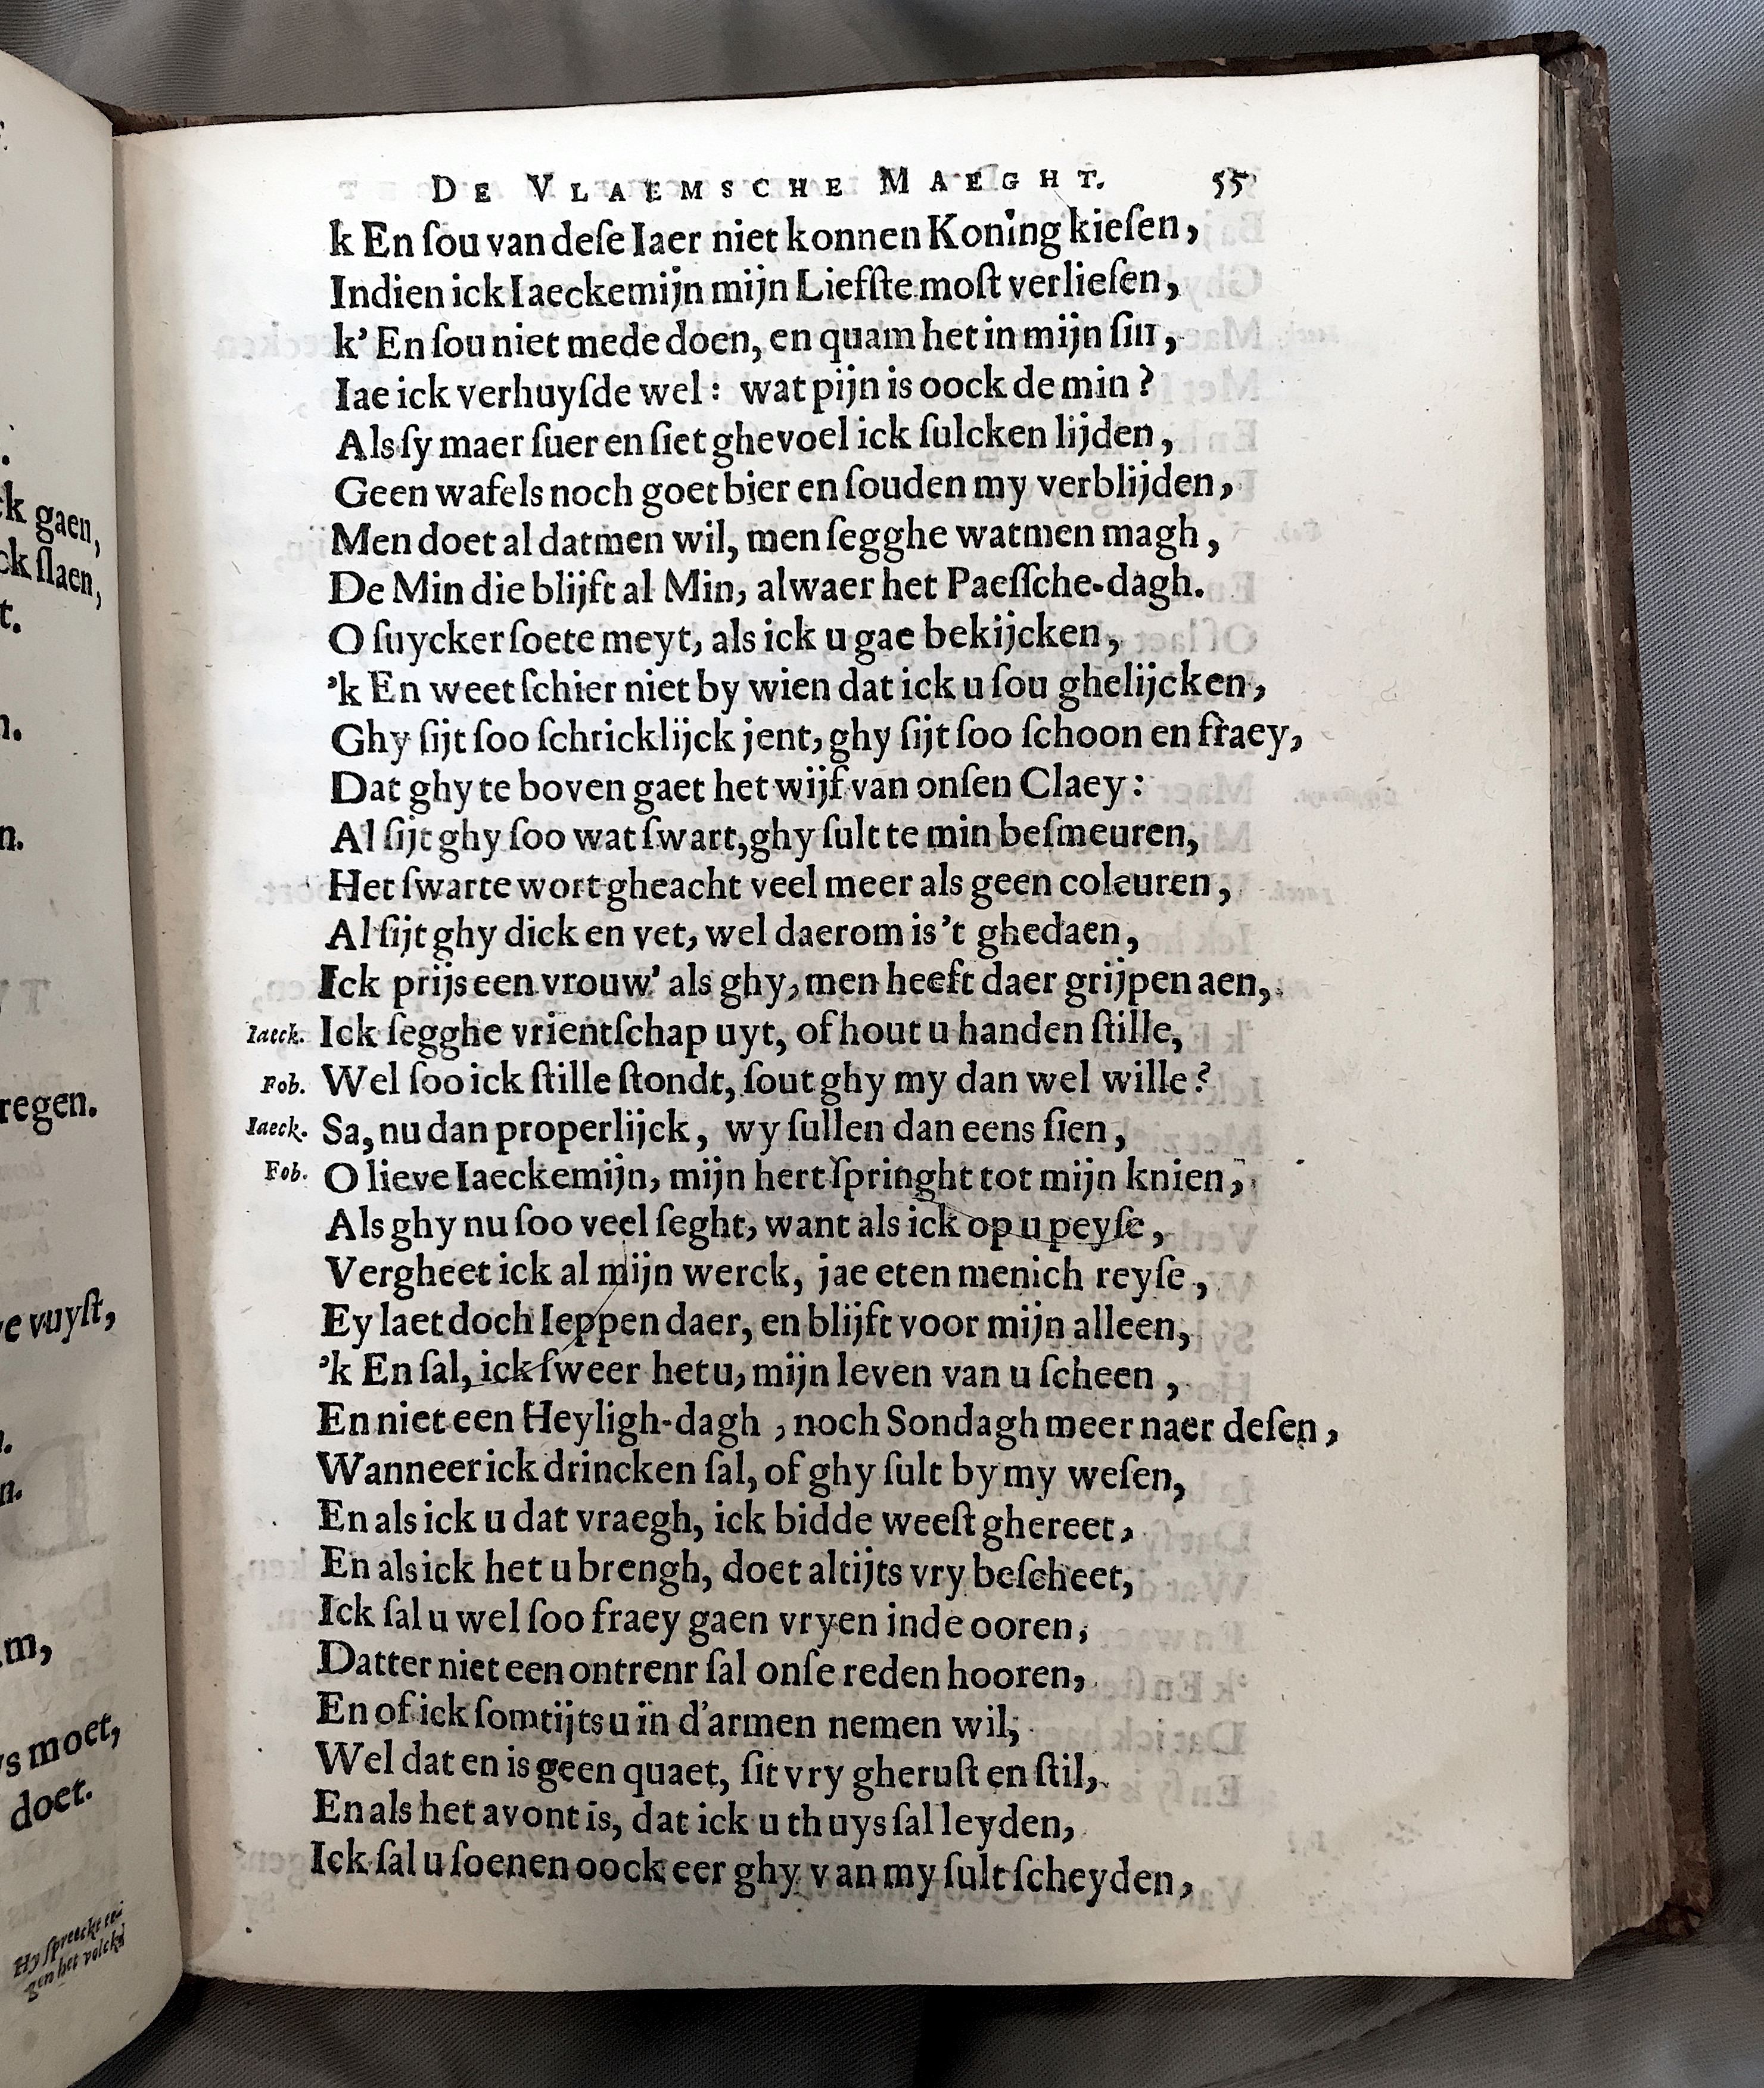 DE VLAEMSCHE MAEGHT. 55
k En ſou van deſe Iaer niet konnen Koning kieſen,
Indien ick Iaeckemijn mijn Liefſte moſt verlieſen,
k' En ſou niet mede doen, en quam het in mijn ſin,
Iae ick verhuyſde wel: wat pijn is oock de min?
Als ſy maer ſuer en ſiet ghevoel ick ſulcken lijden,
Geen wafels noch goet bier en ſouden my verblijden,
Men doet al datmen wil, men ſegghe watmen magh,
De Min die blijft al Min, al waer het Paeſſche-dagh.
O ſuycker ſoete meyt, als ick u gae bekijcken,
'k En weet ſchier niet by wien dat ick u ſou ghelijcken,
Ghy ſijt ſoo ſchricklijck jent, ghy ſijt ſoo ſchoon en fraey,
Dat ghy te boven gaet het wijf van onſen Claey:
Al ſijt ghy ſoo wat ſwart, ghy ſult te min beſmeuren,
Het ſwarte wort gheacht veel meer als geen coleuren,
Al ſijt ghy dick en vet, wel daerom is 't ghedaen,
Ick prijs een vrouw' als ghy, men heeft daer grijpen aen,
Iaeck. Ick ſegghe vrientſchap uyt, of hout u handen ſtille,
Fob. Wel ſoo ick ſtille ſtondt, ſout ghy my dan wel wille?
Iaeck. Sa, nu dan properlijck, wy ſullen dan eens ſien,
Fob. O lieve Iaeckemijn, mijn hert ſpringht tot mijn knien,
Als ghy nu ſoo veel ſeght, want als ick op u peyſe,
Vergheet ick al mijn werck, jae eten menich reyſe,
Ey laet doch Ieppen daer, en blijft voor mijn alleen,
'k En ſal, ick ſweer het u, mijn leven van u ſcheen,
En niet een Heyligh-dagh, noch Sondagh meer naer deſen,
Wanneer ick drincken ſal, of ghy ſult by my weſen,
En als ick u dat vraegh, ick bidde weeſt ghereet,
En als ick het u brengh, doet altijts vry beſcheet,
Ick ſal u wel ſoo fraey gaen vryen inde ooren,
Datter niet een ontrenr ſal onſe reden hooren,
En of ick ſomtijts u in d'armen nemen wil,
Wel dat en is geen quaet, ſit vry gheruſt en ſtil,
En als het avont is, dat ick u thuys ſal leyden,
Ick ſal u ſoenen oock eer ghy van my ſult ſcheyden,
gaen,
ſlaen,
regen.
vuyſt,
moet,
doet.
Hy ſpreeckt te-
gen het volck